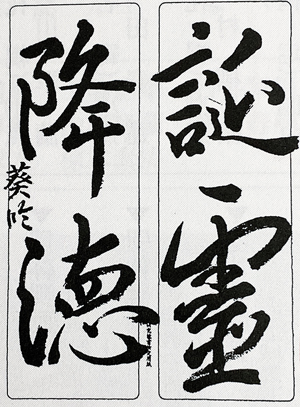 誕靈
降德
葵吟